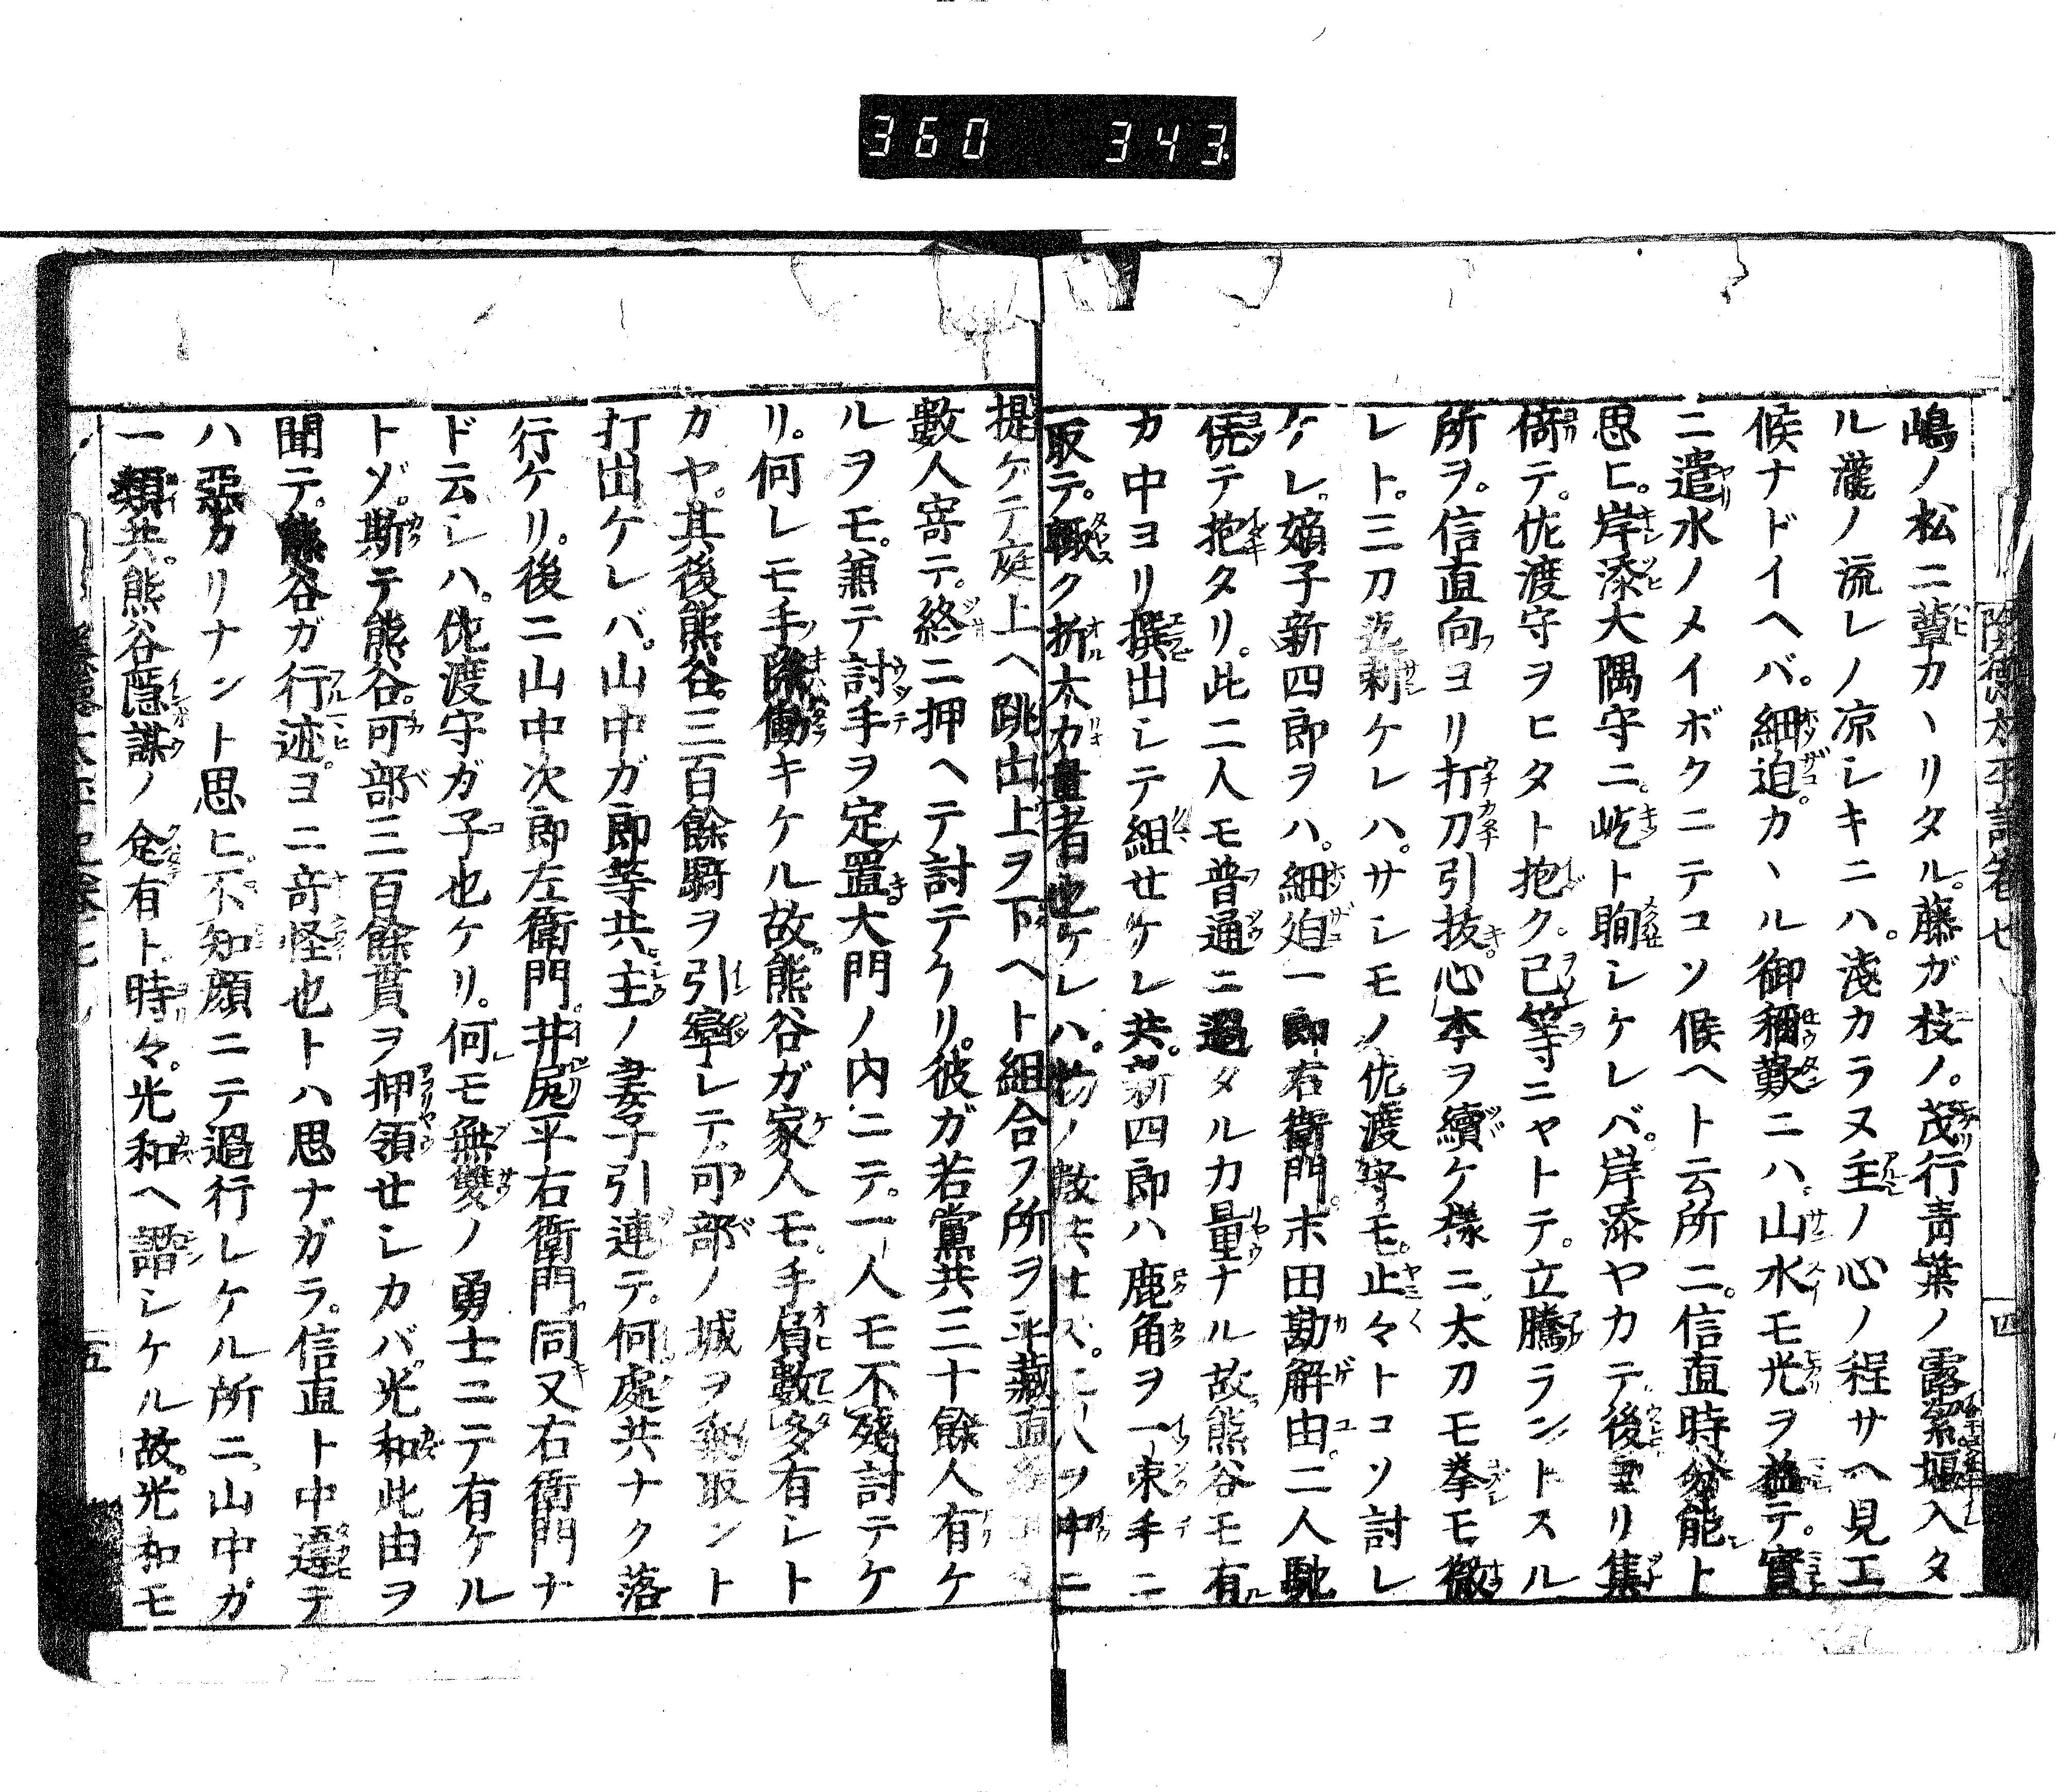 360 343
陰德太平記卷七 四
嶋ノ松ニ蕈カヽリタル。藤ガ枝ノ。茂行青葉ノ露堀入タ
ル瀧ノ流レノ凉シキニハ。淺カラヌ主ノ心ノ程サヘ見エ
候ナドイヘバ。細迫。カヽル御稱歎ニハ。山水モ光ヲ益テ。實
ニ遣水ノメイボクニテコソ候ヘト云所ニ。信直時分能ト
思ヒ。岸添大隅守ニ。屹ト眴シケレバ。岸添ヤカテ後ヨリ集
倚テ。佐渡守ヲヒタト抱ク。己等ニヤトテ。立騰ラントスル
所ヲ。信直向ヨリ打刀引抜キ。心本ヲ續ケ樣ニ。太刀モ拳モ徹
レト。三刀迄刺ケレハ。サシモノ佐渡守モ。止々トコソ討レ
ケレ。嫡子新四郎ヲハ。細迫一郎右衛門。末田勘解由。二人馳
テ抱タリ。此二人モ普通ニ過タル力量ナル故。熊谷モ有
カ中ヨリ撰出シテ組セケレ共。新四郎ハ鹿角ヲ一束手ニ
取テ。輙ク折太力量者也ケレハ。物ノ數モセス。二人ヲ中ニ
提ゲテ庭上ヘ跳出上ヲ下ヘト組合フ所ヲ平藏直
數人寄テ。終ニ押ヘテ討テケリ。彼ガ若黨共三十餘人有ケ
ルヲモ。兼テ討手ヲ定置大門ノ内ニテ。一人モ不殘討テケ
リ。何レモ手除働キケル故。熊谷ガ家人モ。手負數多有シト
カヤ。其後熊谷。三百餘騎ヲ引率レテ。可部ノ城ヲ取ント
打出ケレバ。山中ガ郎等共。主ノ妻子引連テ。何處共ナク落
行ケリ。後ニ山中次郎左衛門。井尻平右衛門。同又右衛門ナ
ド云シハ。佐渡守ガ子也ケリ。何モ無雙ノ勇士ニテ有ケル
トゾ。斯テ熊谷。可部三百餘貫ヲ押領セシカバ。光和此由ヲ
聞テ。熊谷ガ行迹。ヨニ奇怪也トハ思ナガラ。信直ト中違テ
ハ惡カリナント思ヒ。不知顔ニテ過行レケル所ニ。山中ガ
一類共。熊谷隱謀ノ企有ト。時々。光和ヘ譖シケル故。光和モ
五